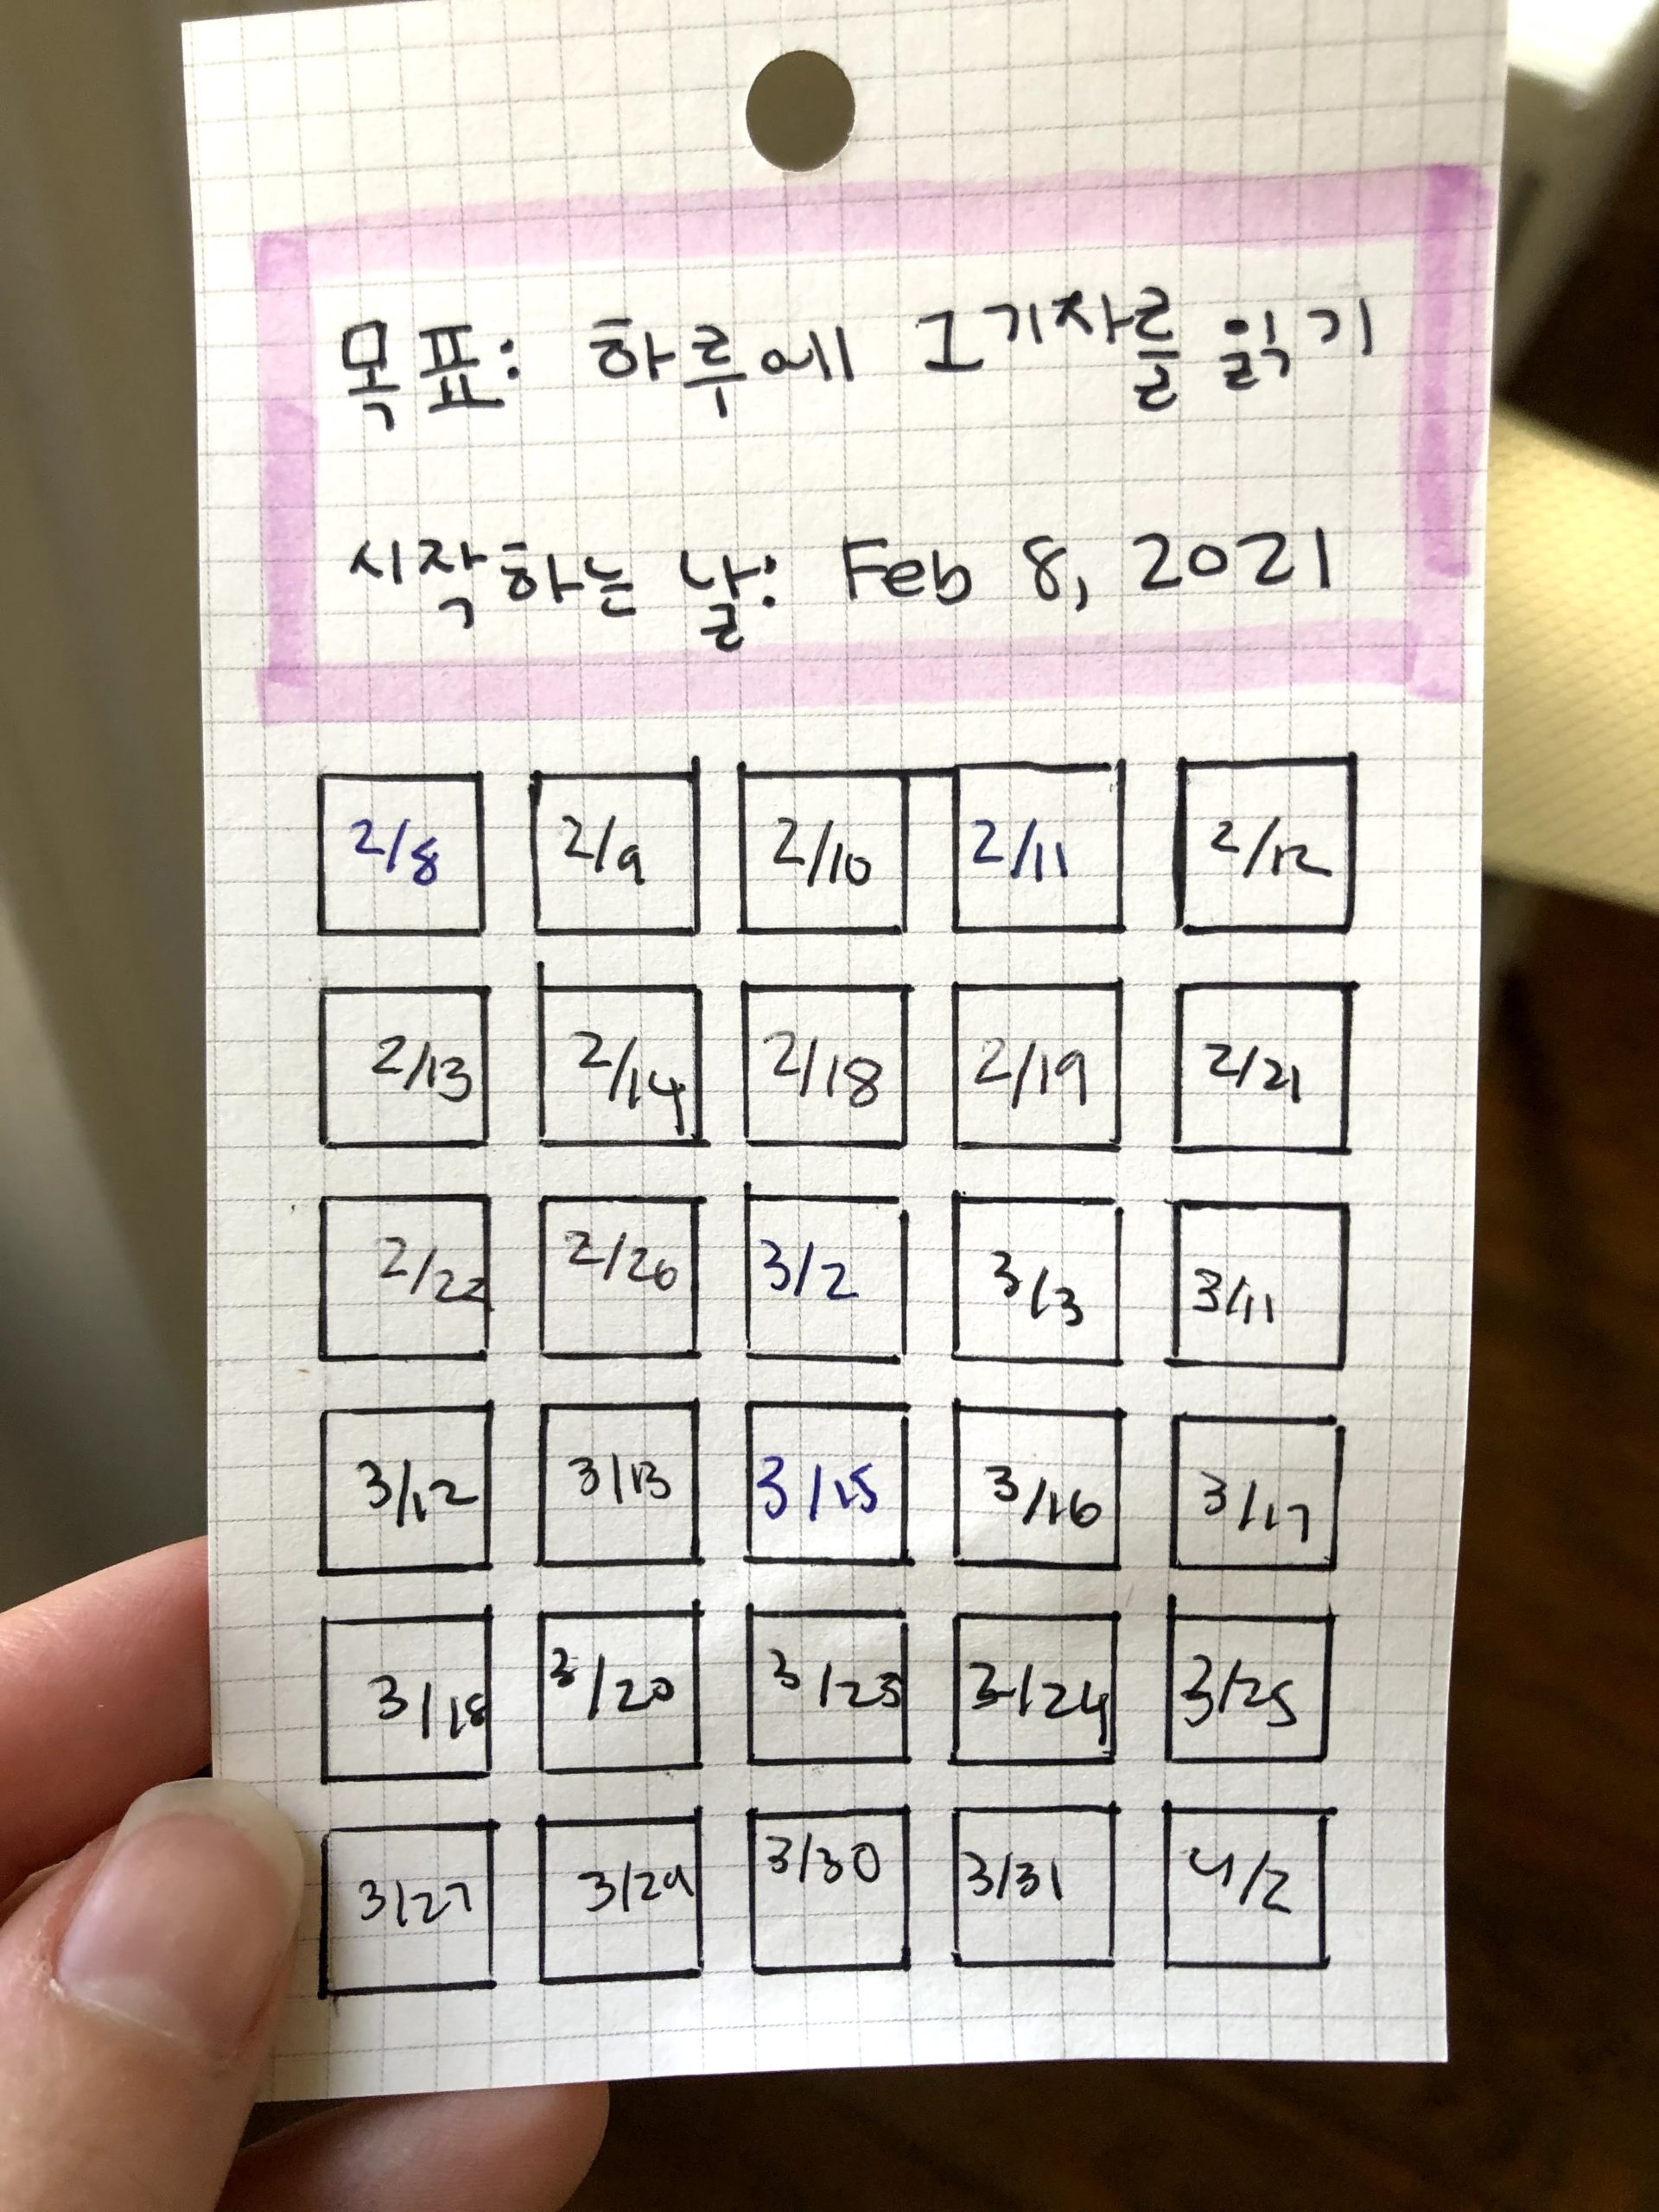 목표: 하루에 1기자를 읽기
시작하는 날: Feb 8, 2021
2/8 2/9 2/10 2/11 2/12
2/13 2/14 2/18 2/19 2/21
2/22 2/26 3/2 3/3 3/11
3/12 3/13 3/15 3/16 3/17
3/18 3/20 3/23 3/24 3/25
3/27 3/29 3/30 3/31 4/2